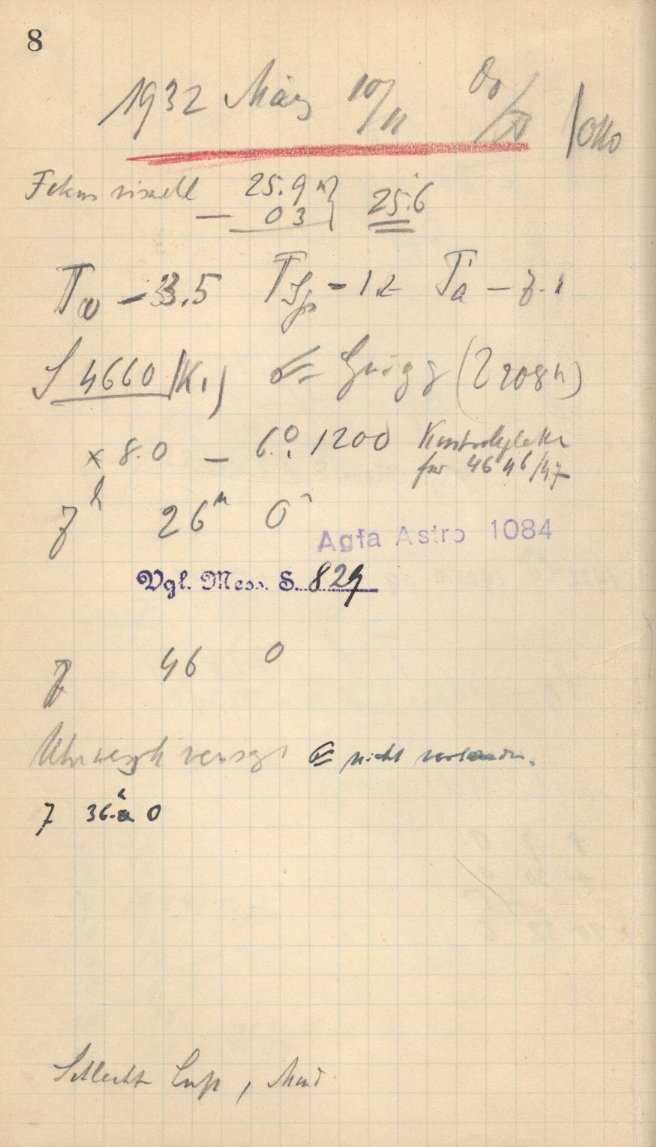 8
1932 März 10/11
Fokus visuell 25.9
– 03 25.6
T – 3.5 T – 1.2 Ta – 7.1
S 4660 (K1) = Grigg (2208
× 8.0 – 6. 1200 Kontrollplatte
für 4646/47
7h 26m 0s
Agfa Astro 1084
Vgl. Mess. S. 829
7 46 0
Uhrwerk versagt nicht vorhanden.
7 36 0
Schlechte Luft, Mond